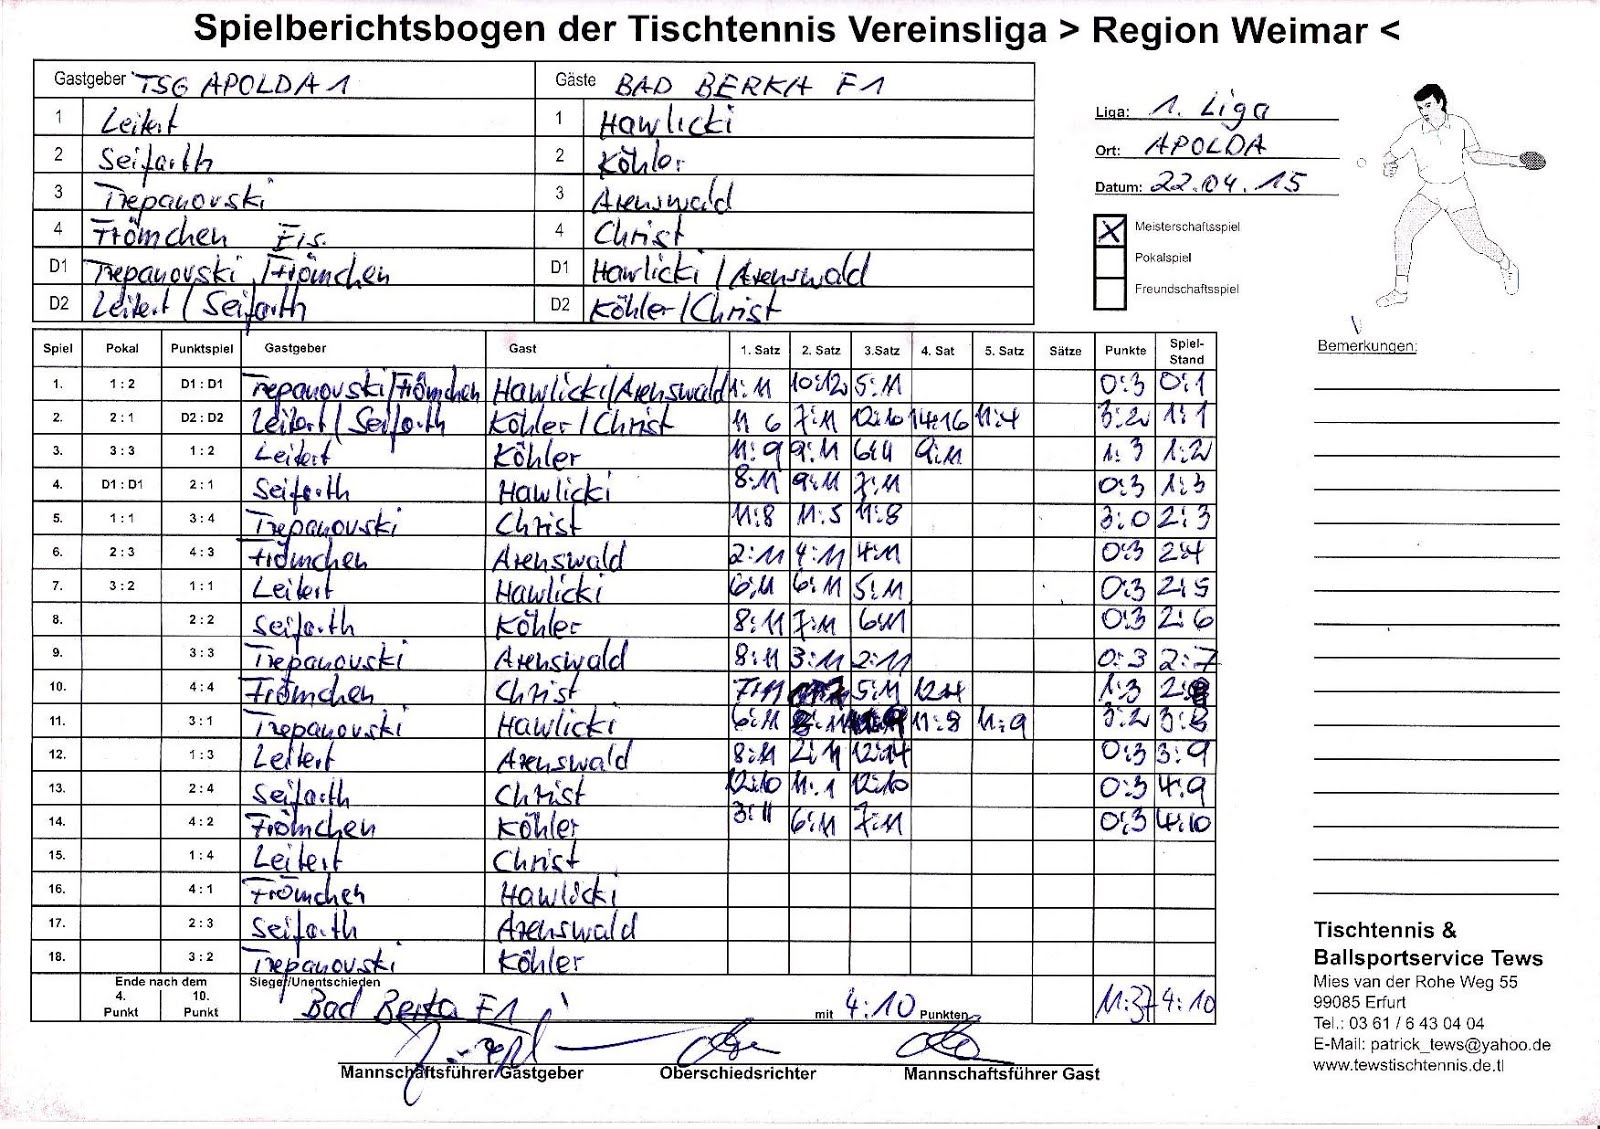 Spielberichtsbogen der Tischtennis Vereinsliga > Region Weimar <
Gastgeber TSG APOLDA 1 Gäste BAD BERKA F1
1 Leitert 1 Hawlicki
2 Seifarth 2 Köhler
3 Trepanovski 3 Arenswald
4 Frömchen Ers. 4 Christ
D1 Trepanovski/Frömchen D1 Hawlicki/Arenswald
D2 Leitert/Seifarth D2 Köhler/Christ
Liga: 1. Liga
Ort: APOLDA
Datum: 22.04.15
X Meisterschaftsspiel
Pokalspiel
Freundschaftsspiel
Bemerkungen:
Spiel Pokal Punktspiel Gastgeber Gast 1. Satz 2. Satz 3.Satz 4. Sat 5. Satz Sätze Punkte Spiel-Stand
1. 1 : 2 D1 : D1 Trepanovski/Frömchen Hawlicki/Arenswald 1:11 10:12 5:11 0:3 0:1
2. 2 : 1 D2 : D2 Leitert/Seifarth Köhler/Christ 11 6 7:11 12:10 14:16 11:4 3:2 1:1
3. 3 : 3 1 : 2 Leitert Köhler 11:9 9:11 6:11 9:11 1:3 1:2
4. D1 : D1 2 : 1 Seifarth Hawlicki 8:11 9:11 7:11 0:3 1:3
5. 1 : 1 3 : 4 Trepanovski Christ 11:8 11:5 11:8 3:0 2:3
6. 2 : 3 4 : 3 Frömchen Arenswald 2:11 4:11 4:11 0:3 2:4
7. 3 : 2 1 : 1 Leitert Hawlicki 6:11 6:11 5:11 0:3 2:5
8. 2 : 2 Seifarth Köhler 8:11 7:11 6:11 0:3 2:6
9. 3 : 3 Trepanovski Arenswald 8:11 3:11 2:11 0:3 2:7
10. 4 : 4 Frömchen Christ 7:11 5:11 12:14 1:3 2:8
11. 3 : 1 Trepanovski Hawlicki 6:11 11:8 11:9 3:2 3:8
12. 1 : 3 Leitert Arenswald 8:11 2:11 12:14 0:3 3:9
13. 2 : 4 Seifarth Christ 12:10 11:1 12:10 0:3 4:9
14. 4 : 2 Frömchen Köhler 3:11 6:11 7:11 0:3 4:10
15. 1 : 4 Leitert Christ
16. 4 : 1 Frömchen Hawlicki
17. 2 : 3 Seifarth Arenswald
18. 3 : 2 Trepanovski Köhler
Ende nach dem
4. Punkt 10. Punkt
Sieger/Unentschieden
Bad Berka F1 mit 4:10 Punkten 11:37 4:10
Mannschaftsführer Gastgeber Oberschiedsrichter Mannschaftsführer Gast
Tischtennis &
Ballsportservice Tews
Mies van der Rohe Weg 55
99085 Erfurt
Tel.: 03 61 / 6 43 04 04
E-Mail: patrick_tews@yahoo.de
www.tewstischtennis.de.tl